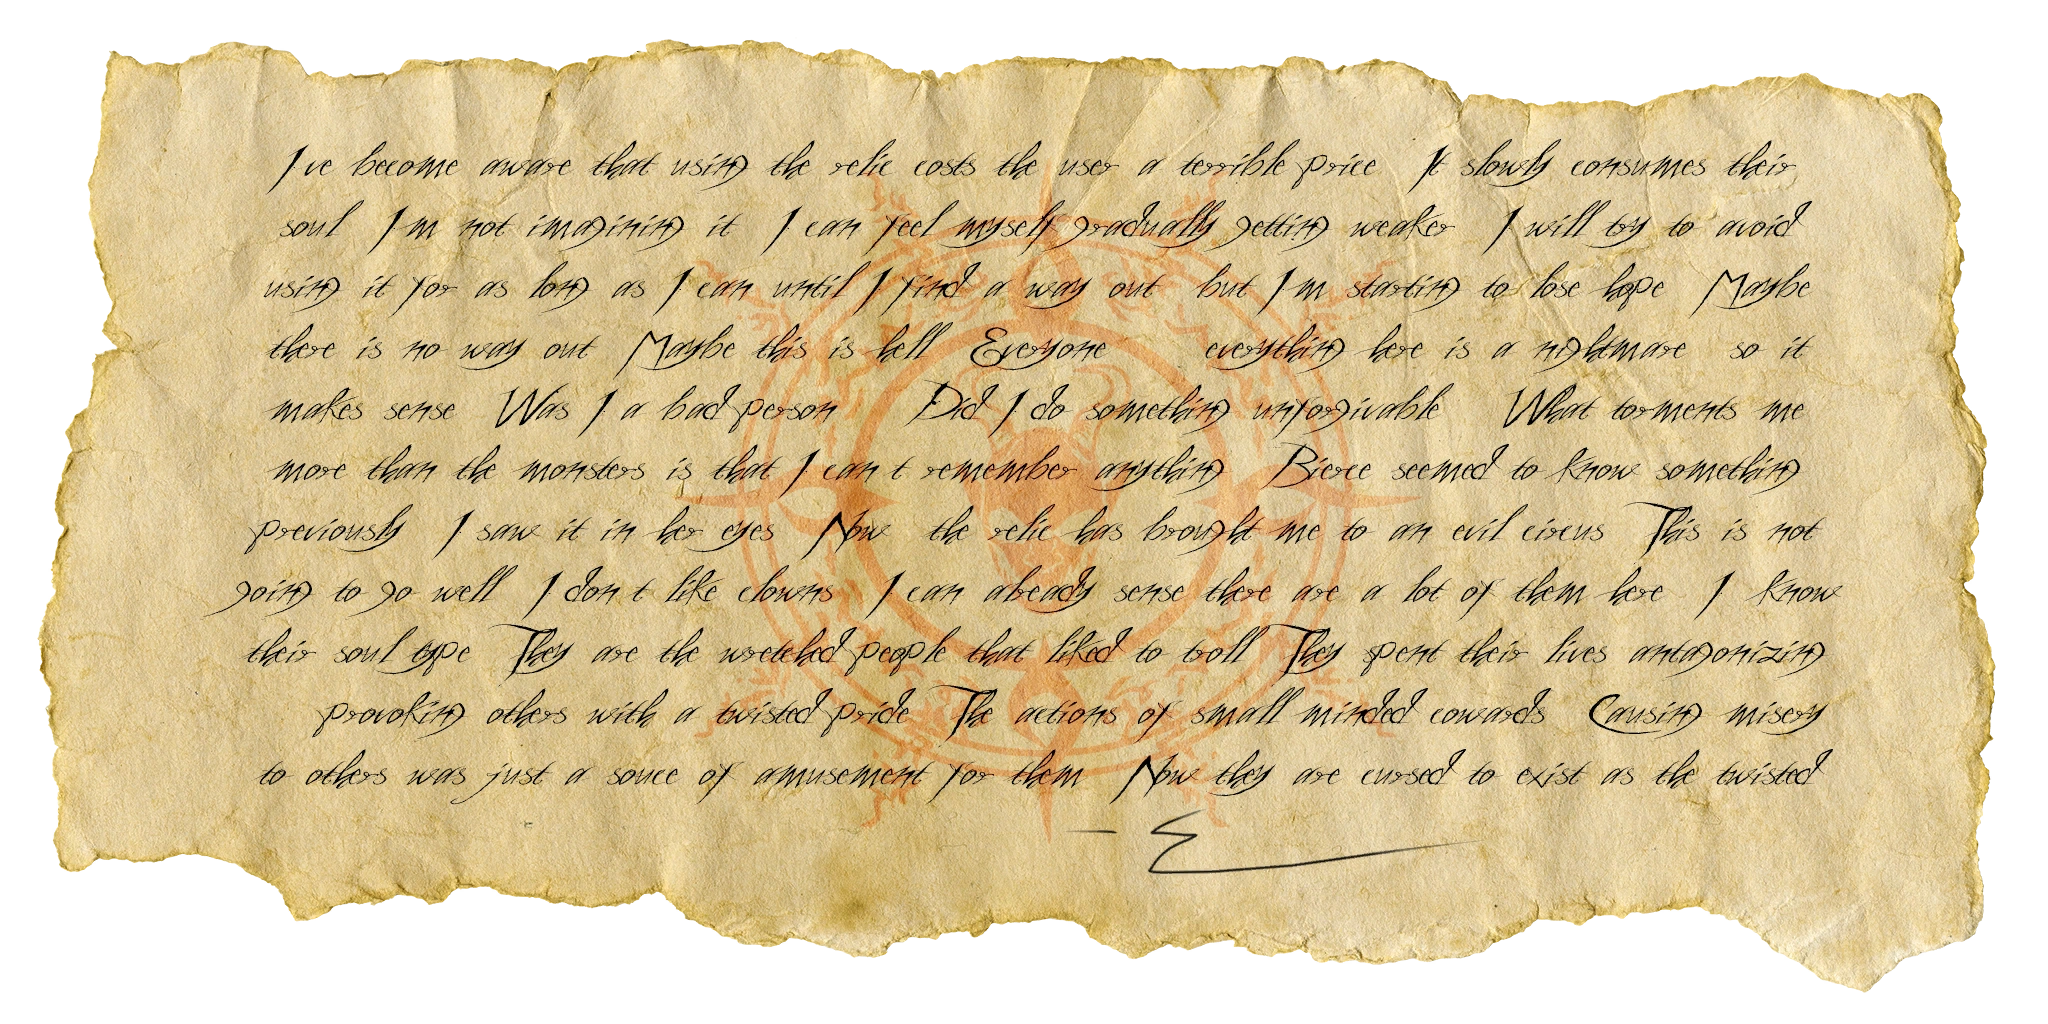 I ve become aware that using the relic costs the user a terrible price It slowly consumes their
soul I m not imagining it I can feel myself gradually getting weaker I will try to avoid
using it for as long as I can until I find a way out but I m starting to lose hope Maybe
there is no way out Maybe this is hell Everyone everything here is a nightmare so it
makes sense Was I a bad person Did I do something unforgivable What torments me
more than the monsters is that I can t remember anything Bierce seemed to know something
previously I saw it in her eyes Now the relic has brought me to an evil circus This is not
going to go well I don t like clowns I can already sense there are a lot of them here I know
their soul type They are the wretched people that liked to troll They spent their lives antagonizing
provoking others with a twisted pride The actions of small minded cowards Causing misery
to others was just a souce of amusement for them Now they are cursed to exist as the twisted
– E